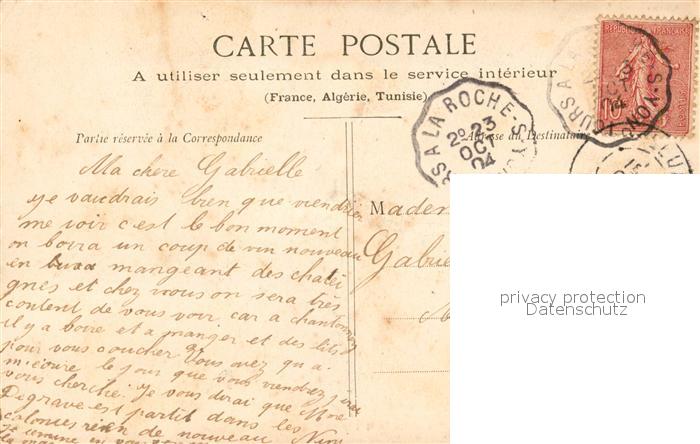 CARTE POSTALE
A utiliser seulement dans le service intérieur
(France, Algérie, Tunisie)
Partie réservée à la Correspondance
Adresse du Destinataire
TOURS A LA ROCHE-S-YON
2º 23
OCT
04
REPUBLIQUE FRANÇAISE
10
Ma chere Gabrielle
je vaudrais bien que viendrier
me voir c'est le bon moment
on boira un coup de vin nouveau
en mangeant des chatei
gnes et chez vous on sera très
content de vous voir car a chantonnay
il y a boire et a manger et des lits
pour vous coucher Vous avez qu a
m'ecrire le jour que vous viendrez j'irai
vous cherche. je vous dirai que
Degrave est partit dans les
colonies rien de nouveau
Madem
Gabrie
privacy protection
Datenschutz